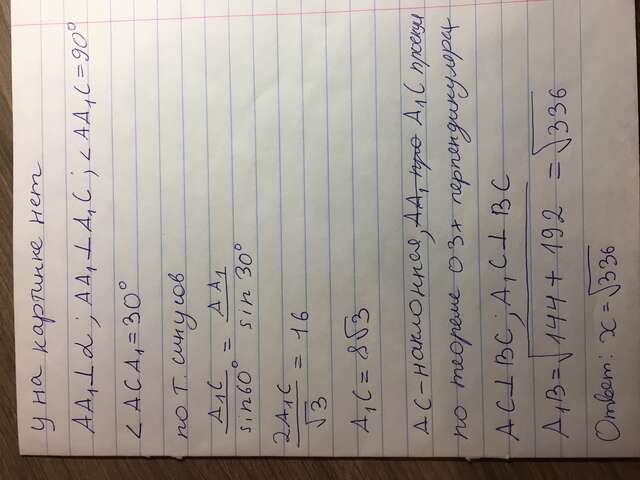 у на картинке нет
AA₁⊥α; AA₁⊥A₁C; ∠AA₁C=90°
∠ACA₁=30°
по т. синусов
A₁C/sin60° = AA₁/sin30°
2A₁C/√3 = 16
A₁C=8√3
AC-наклонная, AA₁ про A₁C проекция
по теореме о 3х перпендикулярах
AC⊥BC; A₁C⊥BC
A₁B=√144+192 = √336
Ответ: x=√336